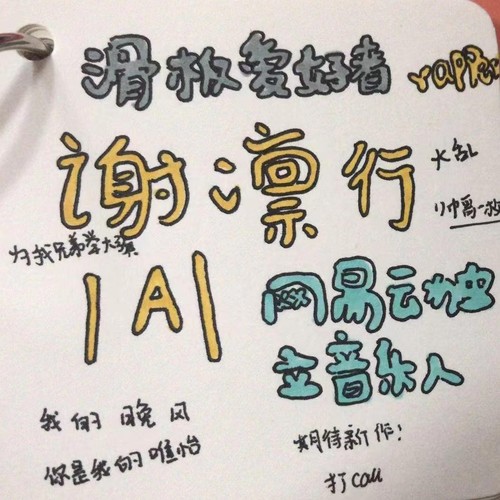 滑板爱好者 rapper
谢凛行
大乱
帅离一秒
为我兄弟擎大旗
|A|
网易云独
立音乐人
我的晚风
你是我的唯怡
期待新作!
打call